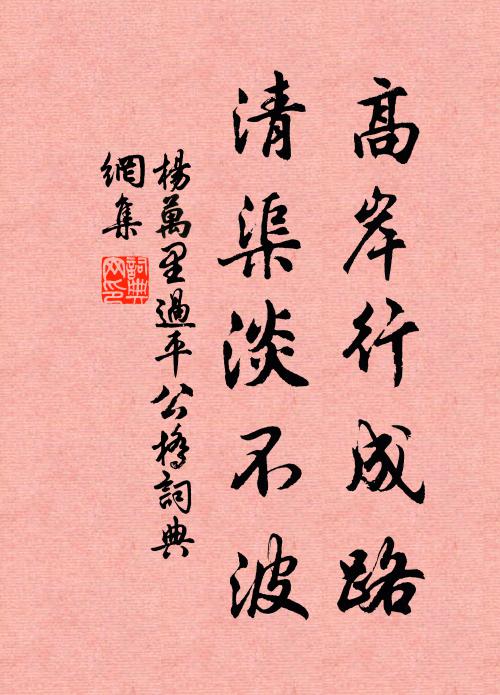 高岸行成路
清渠淡不波
楊萬里過平公橋詞典
網集
詞典網印